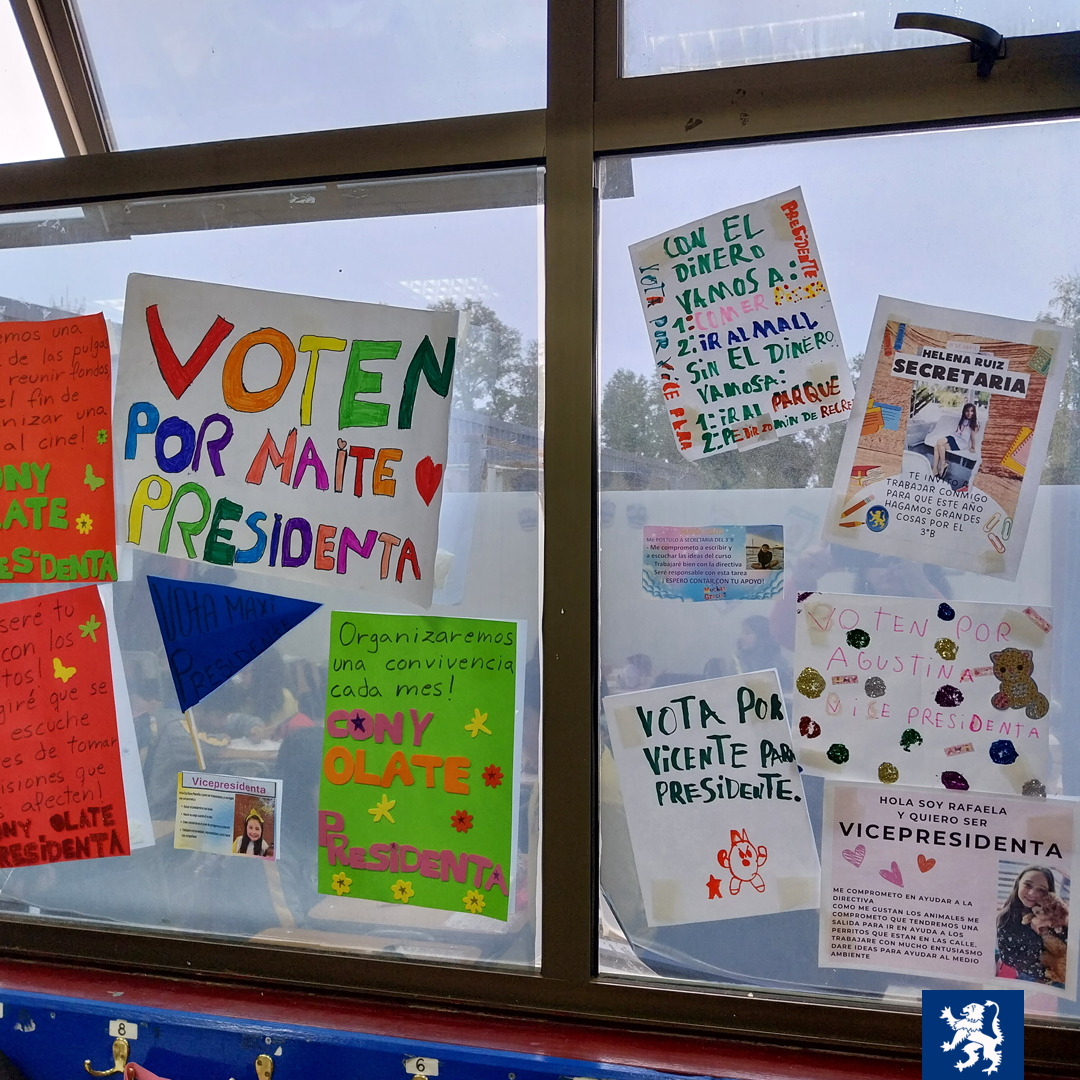 emos una
de las pulgas
reunir fondos
el fin de
nizar una
al cine!
ONY
LATE
ESiDENTA
VOTEN
POR MAiTE
PRESIDENTA
seré tu
con los
tos!
giré que se
escuche
es de tomar
isiones que
afecten!
ONY OLATE
PRESiDENTA
VOTA MAXI
PRESIDENTE
Vicepresidenta
Organizaremos
una convivencia
cada mes!
CONY
OLATE
PRESiDENTA
CON EL
DiNERO
VAMOS A:
1: COMER
2: iR AL MALL
SiN EL DiNERO
VAMOSA:
1: iR AL PARQUE
2: PEDiR 20 MiN DE RECRE
VOTA POR ViCE PARA
PRESiDENTE
HELENA RUIZ
SECRETARIA
TE INVITO A
TRABAJAR CONMIGO
PARA QUE ESTE AÑO
HAGAMOS GRANDES
COSAS POR EL
3°B
ME POSTULO A SECRETARIA DEL 3°B
- Me comprometo a escribir y
a escuchar las ideas del curso
Trabajaré bien con la directiva
Seré responsable con esta tarea
¡ESPERO CONTAR CON TU APOYO!
Muchas
Gracias
VOTEN POR
AGUSTINA
ViCE PRESiDENTA
VOTA POR
ViCENTE PARA
PRESiDENTE.
HOLA SOY RAFAELA
Y QUIERO SER
VICEPRESIDENTA
ME COMPROMETO EN AYUDAR A LA
DIRECTIVA
COMO ME GUSTAN LOS ANIMALES ME
COMPROMETO QUE TENDREMOS UNA
SALIDA PARA IR EN AYUDA A LOS
PERRITOS QUE ESTAN EN LAS CALLE.
TRABAJARE CON MUCHO ENTUSIASMO
DARE IDEAS PARA AYUDAR AL MEDIO
AMBIENTE
8
6